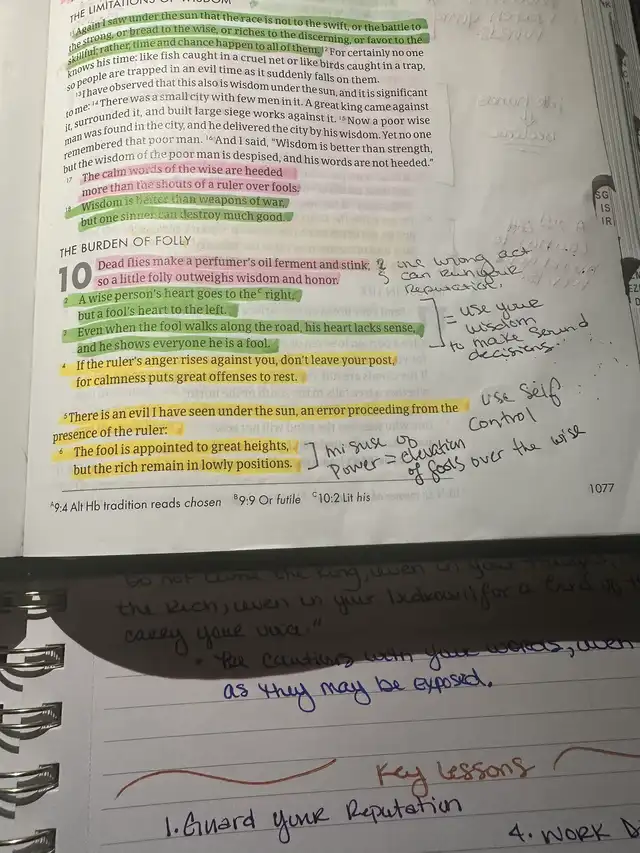 THE LIMITATIONS OF WISDOM
11 Again I saw under the sun that the race is not to the swift, or the battle to
the strong, or bread to the wise, or riches to the discerning, or favor to the
skillful; rather, time and chance happen to all of them. 12 For certainly no one
knows his time: like fish caught in a cruel net or like birds caught in a trap,
so people are trapped in an evil time as it suddenly falls on them.
13 I have observed that this also is wisdom under the sun, and it is significant
to me: 14 There was a small city with few men in it. A great king came against
it, surrounded it, and built large siege works against it. 15 Now a poor wise
man was found in the city, and he delivered the city by his wisdom. Yet no one
remembered that poor man. 16 And I said, "Wisdom is better than strength,
but the wisdom of the poor man is despised, and his words are not heeded."
17 The calm words of the wise are heeded
more than the shouts of a ruler over fools.
18 Wisdom is better than weapons of war,
but one sinner can destroy much good.
SG
IS
IR
THE BURDEN OF FOLLY
10 Dead flies make a perfumer's oil ferment and stink;
so a little folly outweighs wisdom and honor.
one wrong act
can ruin your
Reputation.
2 A wise person's heart goes to the C right,
but a fool's heart to the left.
3 Even when the fool walks along the road, his heart lacks sense,
and he shows everyone he is a fool.
= use your
wisdom
to make sound
decisions..
4 If the ruler's anger rises against you, don't leave your post,
for calmness puts great offenses to rest.
use self
control
5 There is an evil I have seen under the sun, an error proceeding from the
presence of the ruler:
6 The fool is appointed to great heights,
but the rich remain in lowly positions.
misuse of
Power = elevation
of fools over the wise
A 9:4 Alt Hb tradition reads chosen B 9:9 Or futile C 10:2 Lit his
1077
the Rich, even in your bedroom for a bird
carry your
as they may be exposed.
Key lessons
1. Guard your Reputation
4. WORK